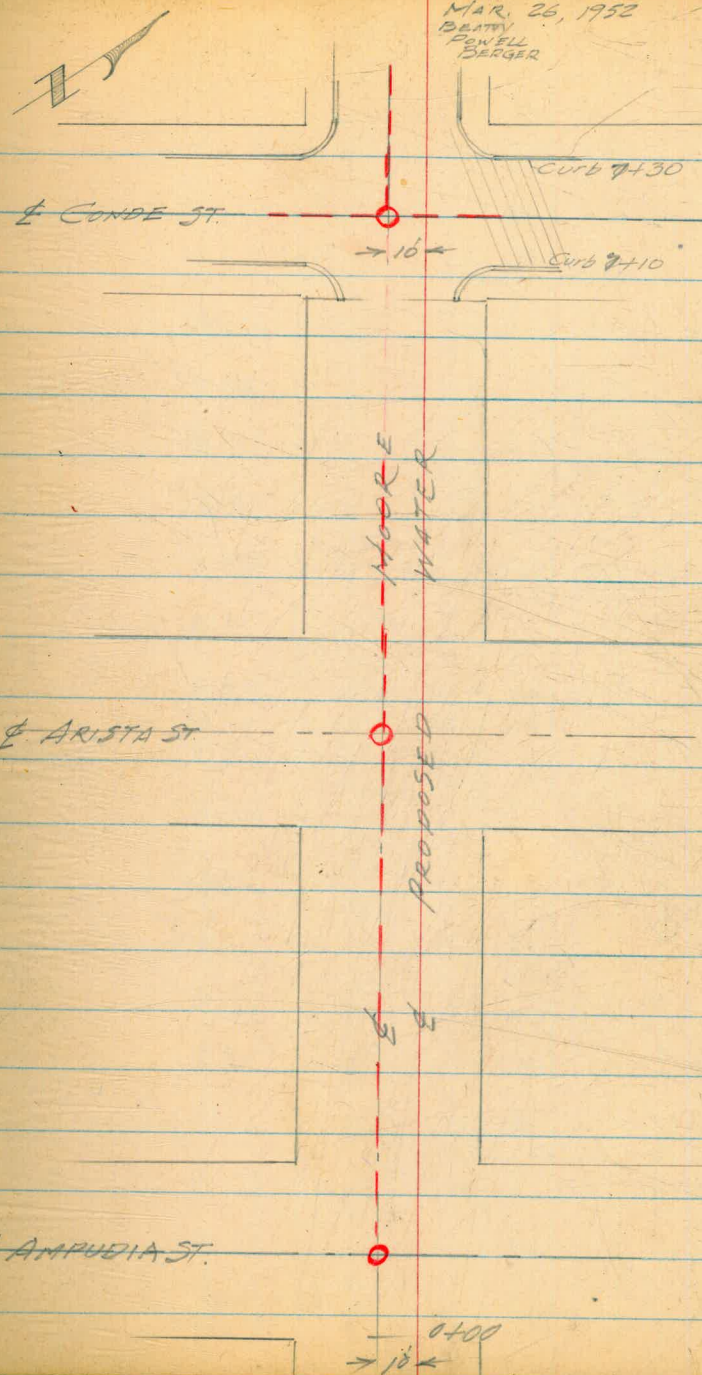 MAR. 26, 1952
BEATTY
POWELL
BERGER
N
Curb 7+30
℄ CONDE ST.
10'
Curb 7+10
℄ MOORE
℄ PROPOSED WATER
℄ ARISTA ST.
AMPUDIA ST.
0+00
10'